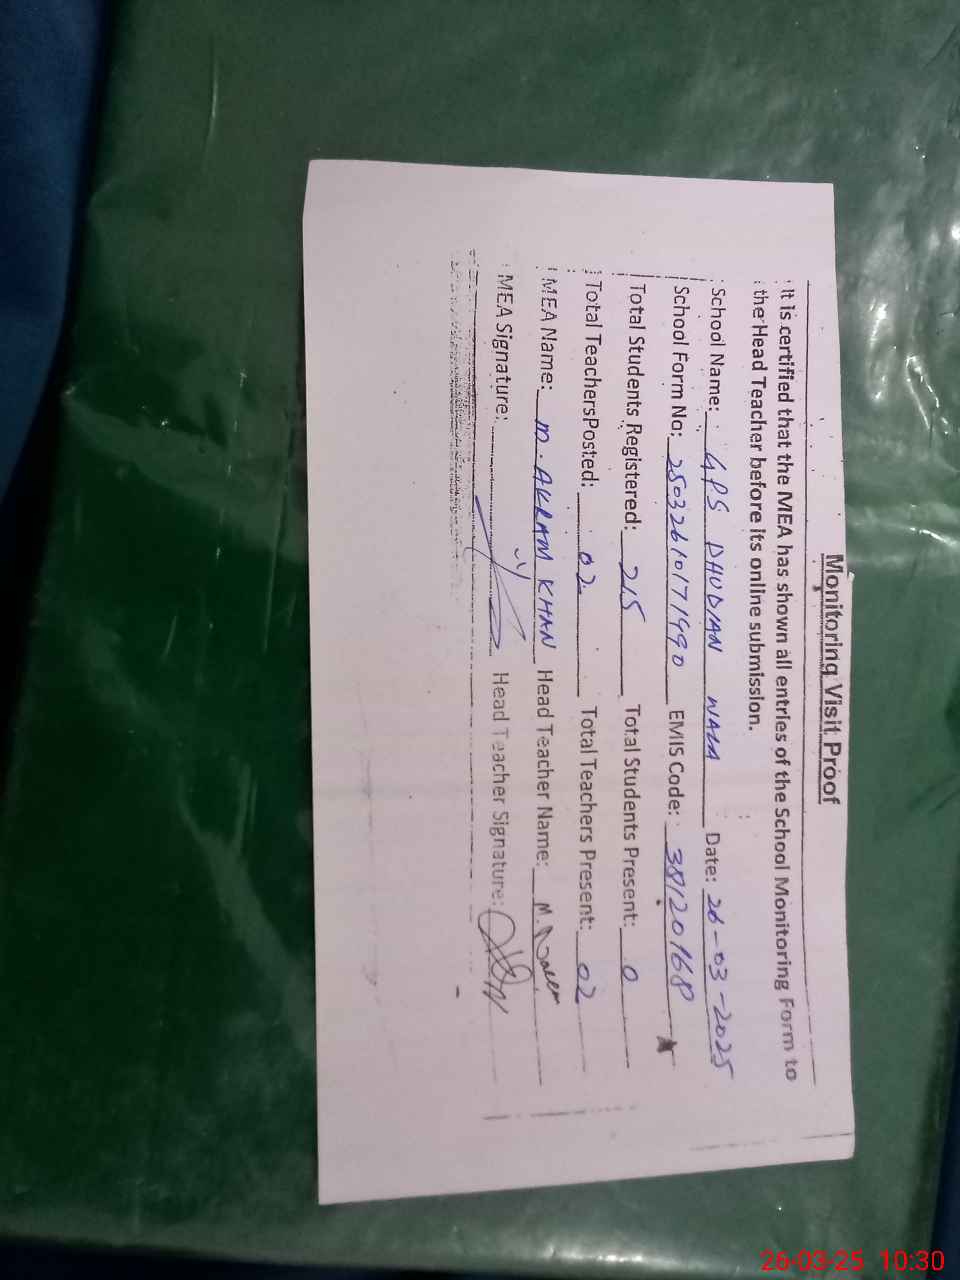 Monitoring Visit Proof
It is certified that the MEA has shown all entries of the School Monitoring Form to
the Head Teacher before its online submission.
School Name: GPS DHUDIAN WALA Date: 26-03-2025
School Form No: 25032610171990 EMIS Code: 38120168
Total Students Registered: 215 Total Students Present: 0
Total TeachersPosted: 02 Total Teachers Present: 02
MEA Name: M. AKRAM KHAN Head Teacher Name: M.
MEA Signature: Head Teacher Signature:
26-03-25 10:30